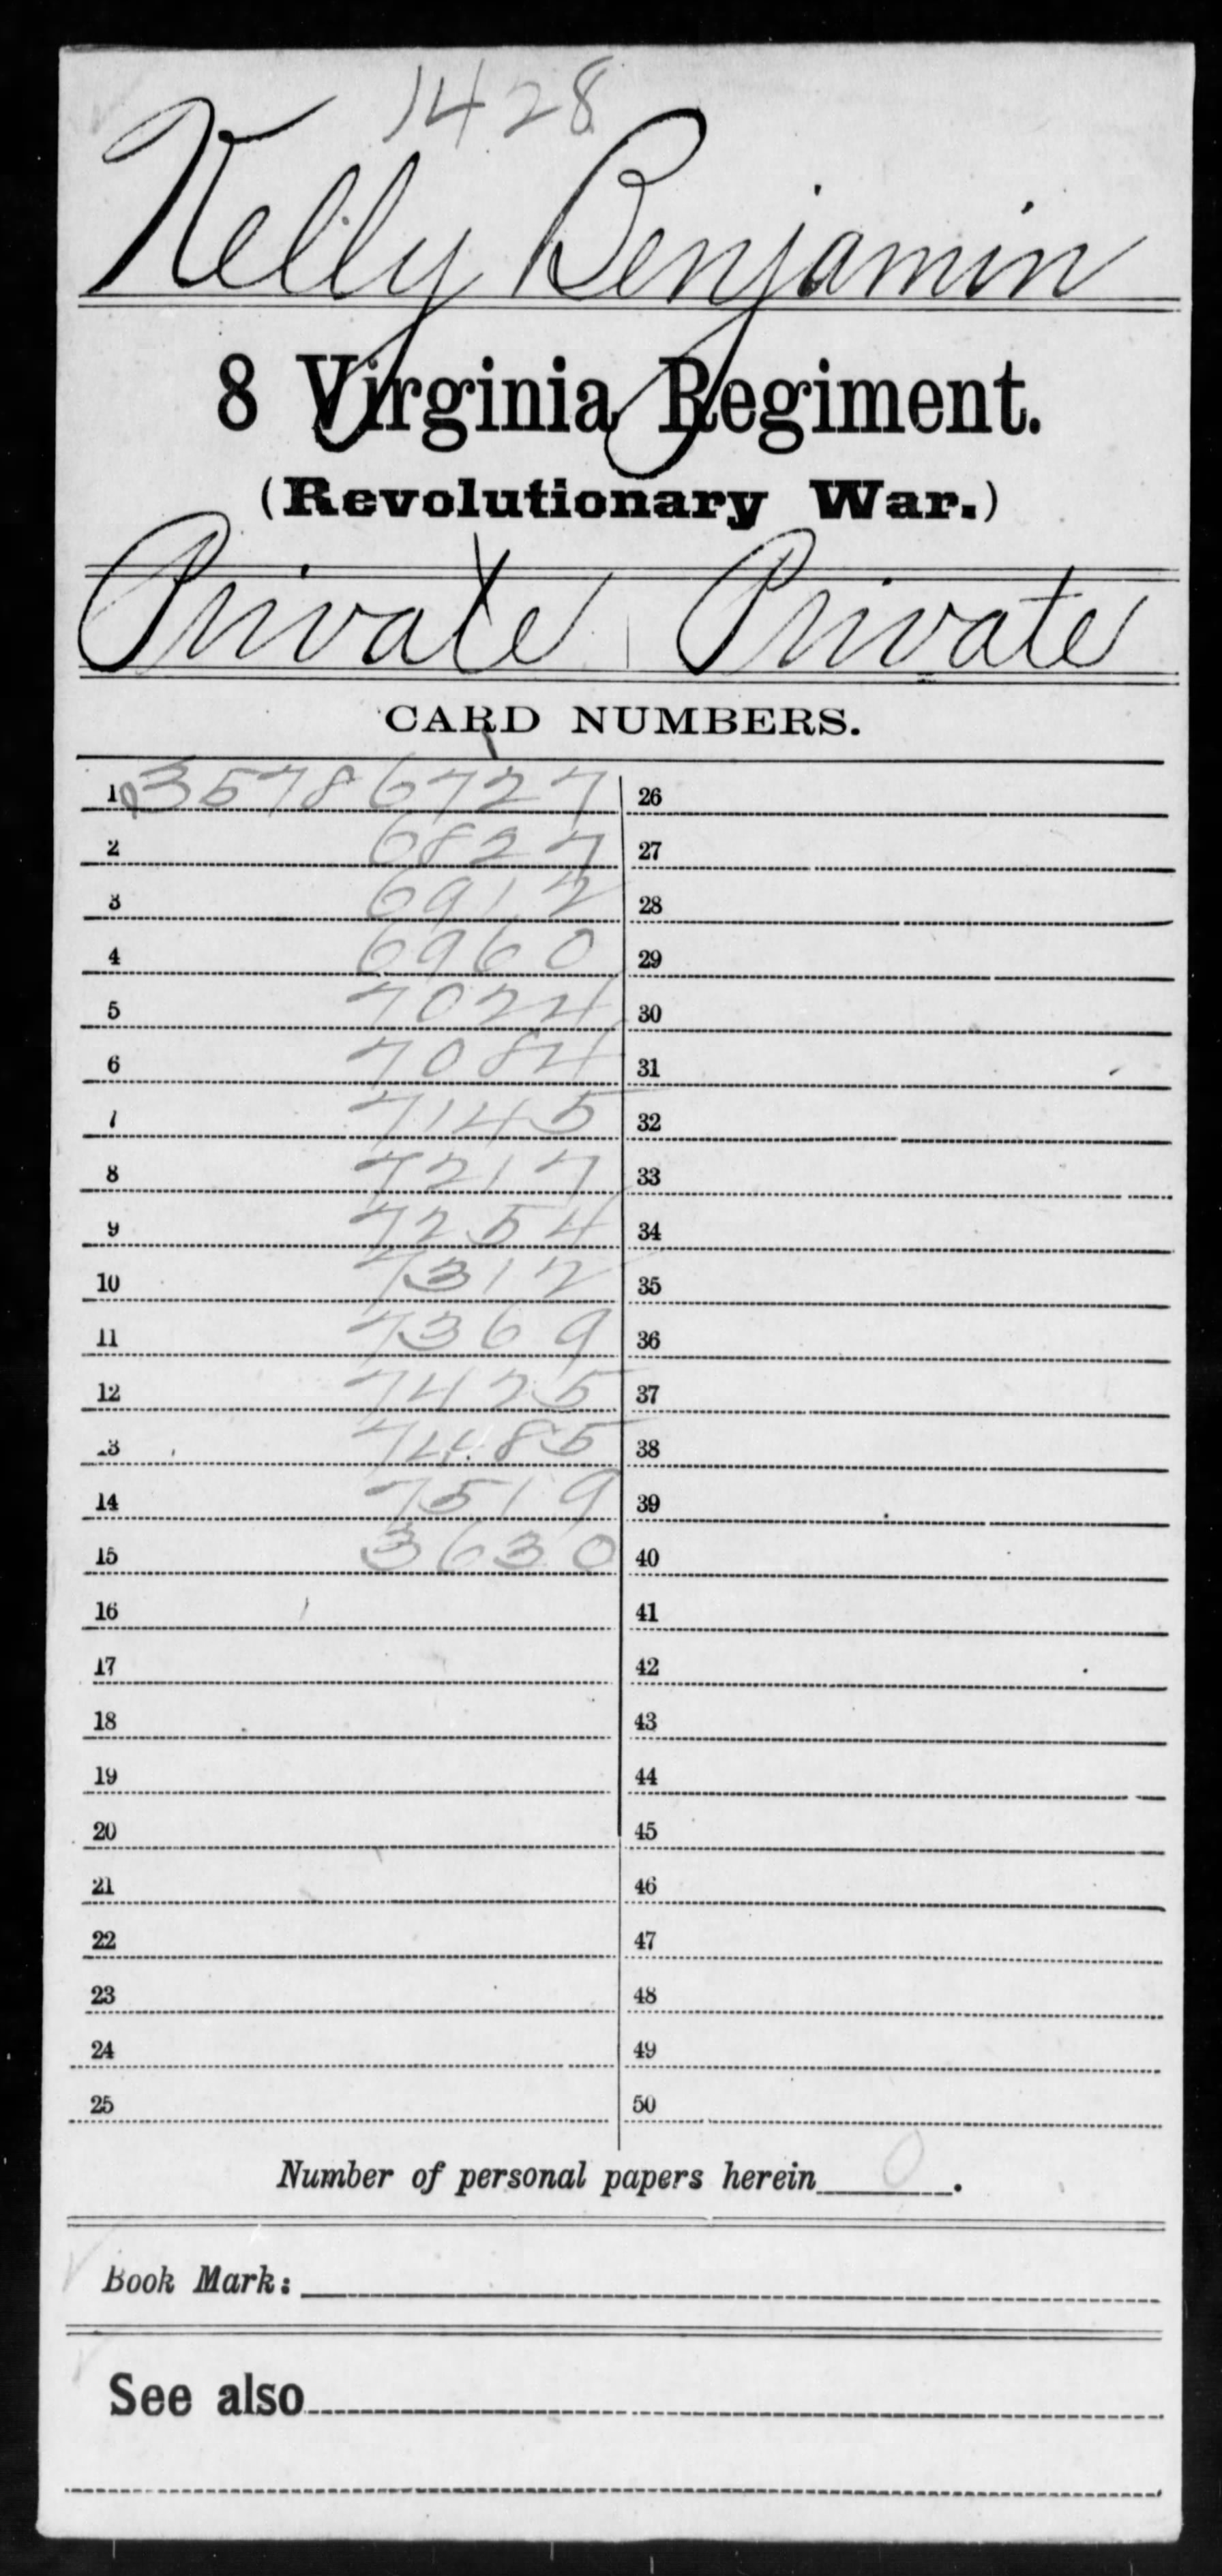 1428
Kelly Benjamin
8 Virginia Regiment.
(Revolutionary War.)
Private Private
CARD NUMBERS.
1 3578 6727
2 6827
3 6912
4 6960
5 7024
6 7084
7 7145
8 7217
9 7254
10 7312
11 7369
12 7425
13 7485
14 7519
15 3630
16
17
18
19
20
21
22
23
24
25
26
27
28
29
30
31
32
33
34
35
36
37
38
39
40
41
42
43
44
45
46
47
48
49
50
Number of personal papers herein 0.
Book Mark:
See also